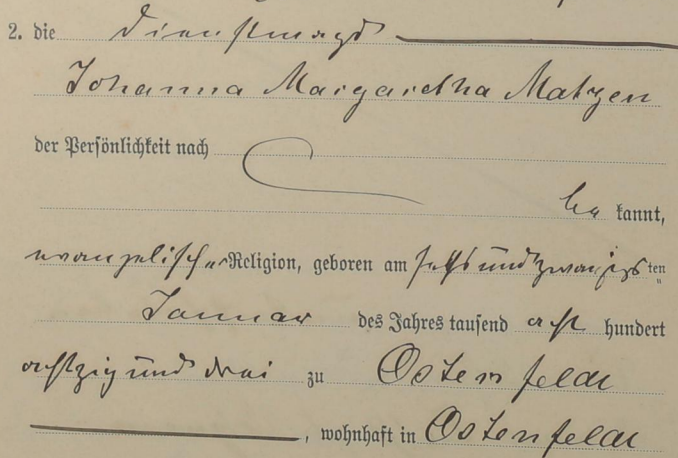 2. die Dienstmagd
Johanna Margaretha Matzen
der Persönlichkeit nach
be kannt,
evangelischer Religion, geboren am sechsundzwanzigsten
Januar des Jahres tausend acht hundert
achtzig und drei zu Ostenfelde
, wohnhaft in Ostenfelde